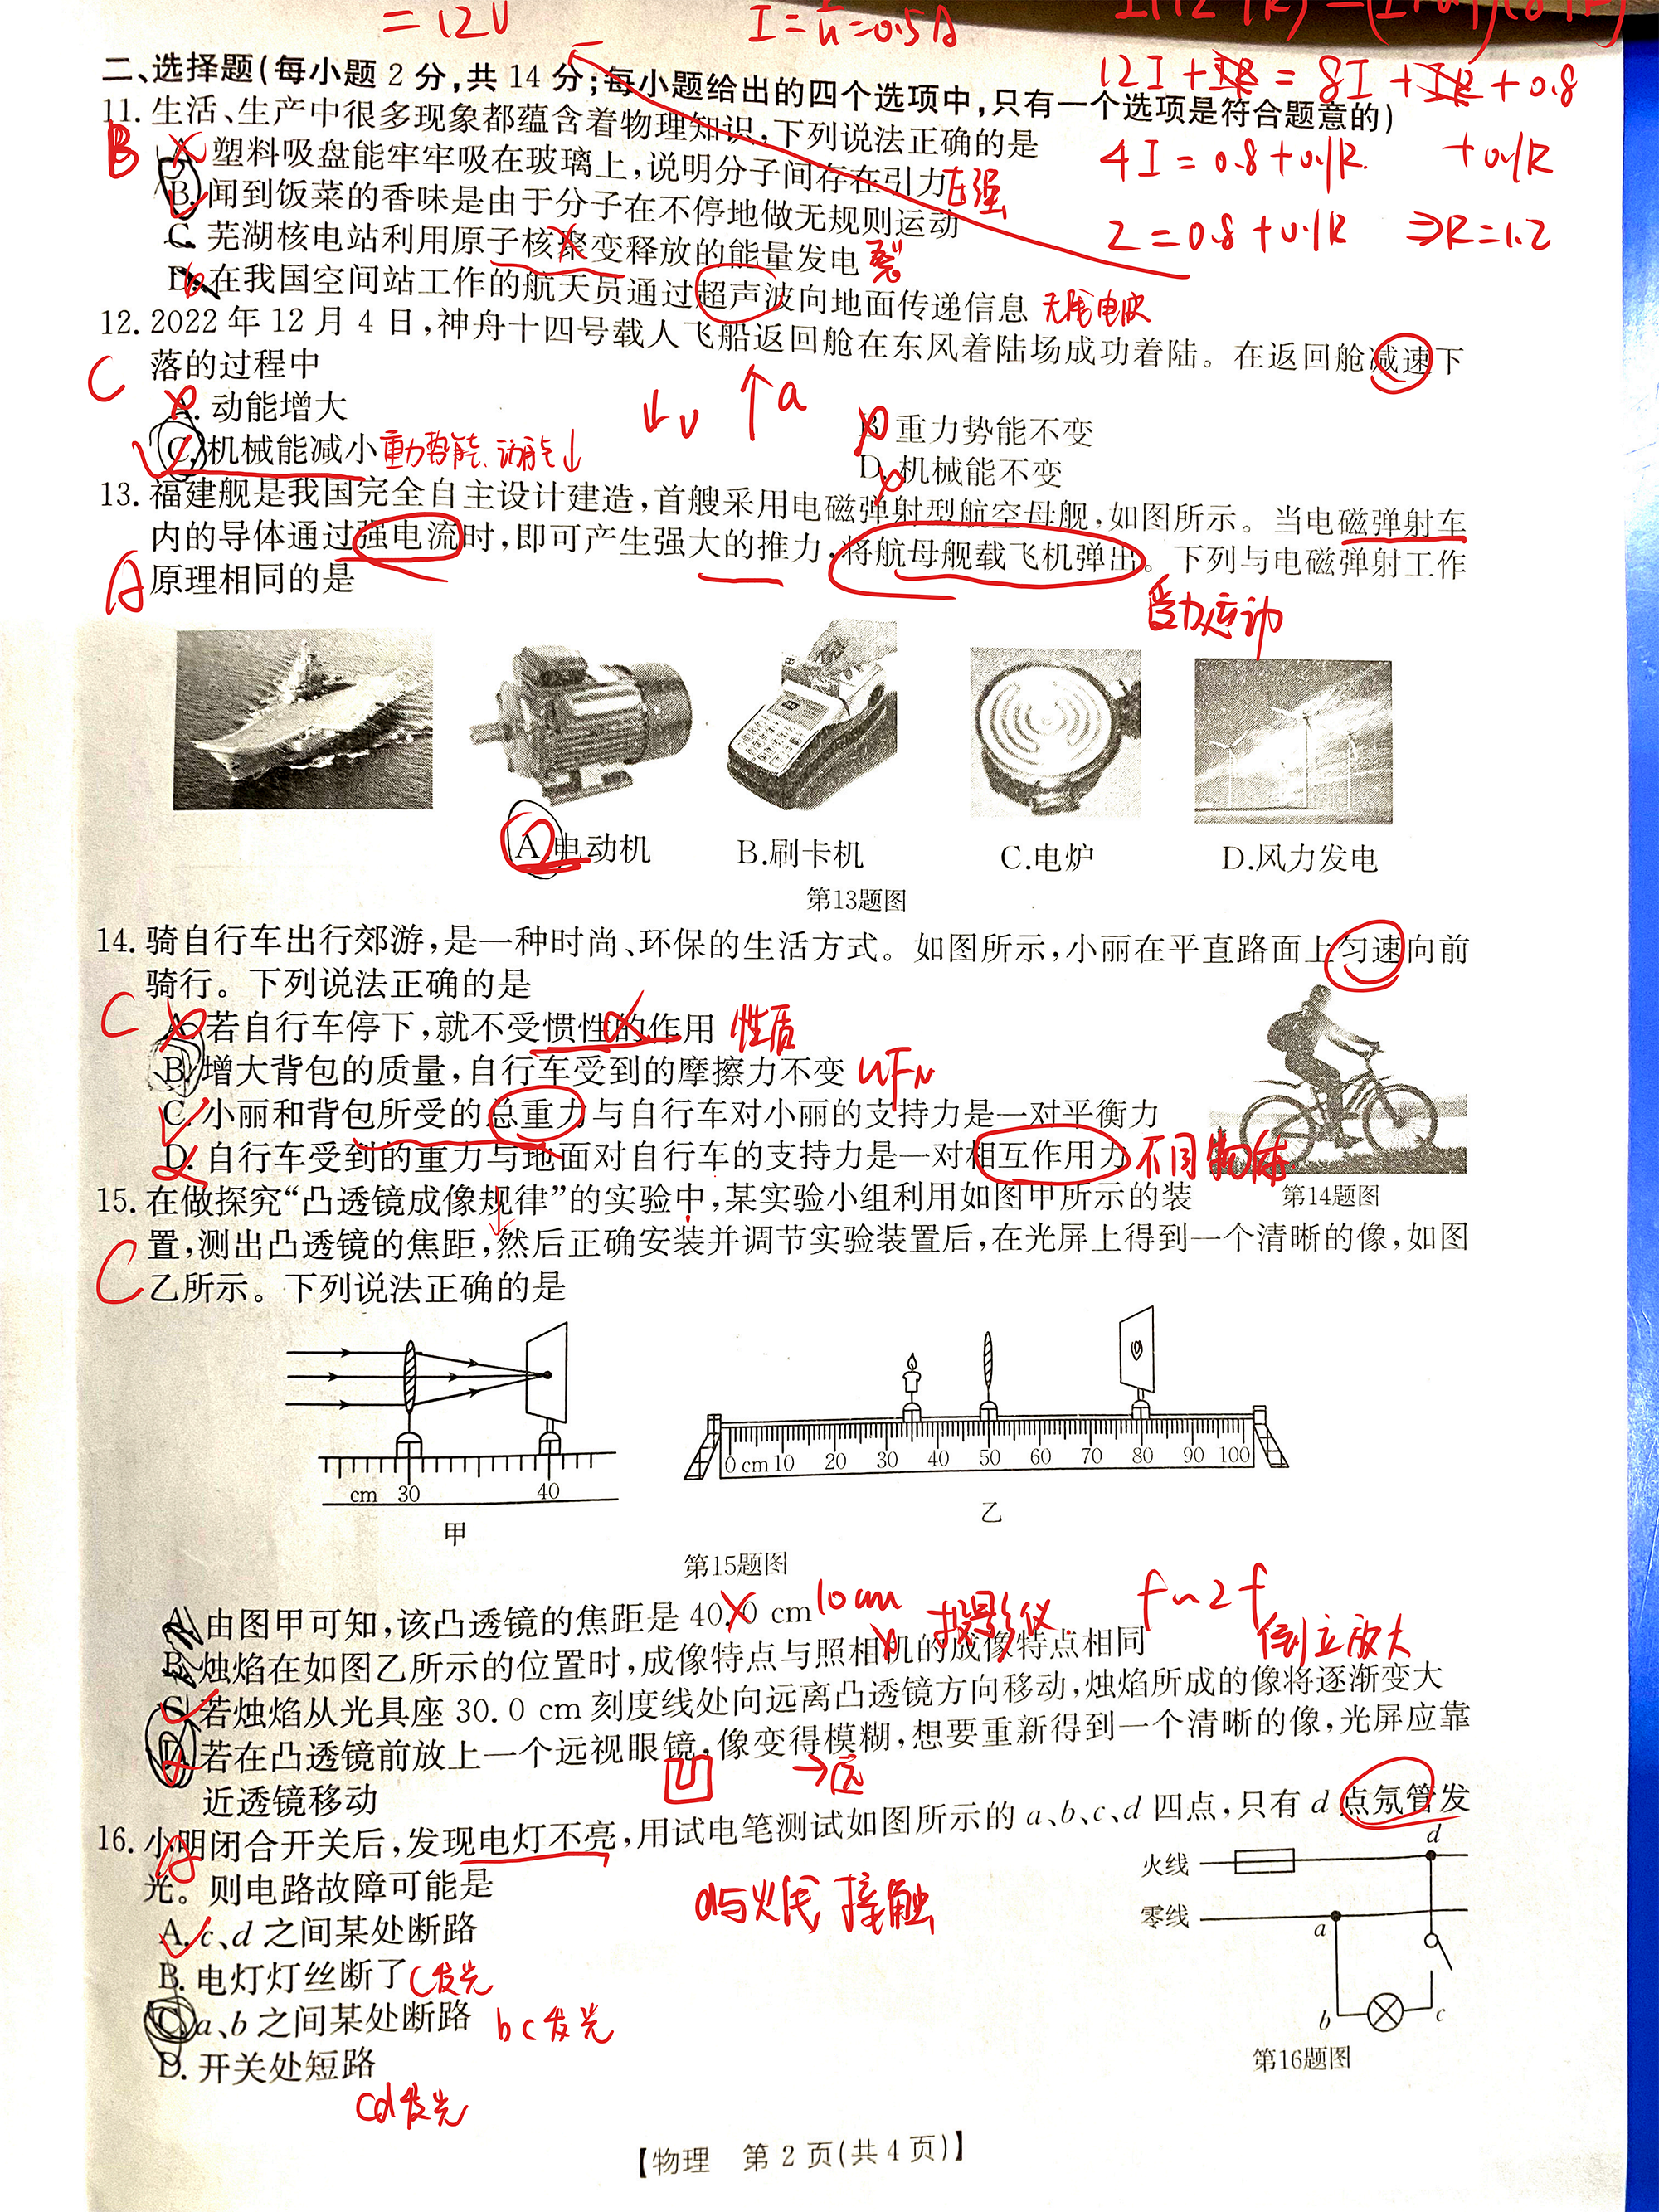 = 12V
I = = 0.5A
12I + IR = 8I + IR + 0.8
+ 0.1R
4I = 0.8 + 0.1R.
2 = 0.8 + 0.1R ⇒ R = 1.2
二、选择题(每小题 2 分,共 14 分;每小题给出的四个选项中,只有一个选项是符合题意的)
11. 生活、生产中很多现象都蕴含着物理知识,下列说法正确的是
B
A. 塑料吸盘能牢牢吸在玻璃上,说明分子间存在引力
压强
B. 闻到饭菜的香味是由于分子在不停地做无规则运动
C. 芜湖核电站利用原子核聚变释放的能量发电
裂
D. 在我国空间站工作的航天员通过超声波向地面传递信息
无线电波
12. 2022 年 12 月 4 日,神舟十四号载人飞船返回舱在东风着陆场成功着陆。在返回舱减速下
落的过程中
C
A. 动能增大
↓v ↑a
B. 重力势能不变
C. 机械能减小
重力势能、动能↓
D. 机械能不变
13. 福建舰是我国完全自主设计建造,首艘采用电磁弹射型航空母舰,如图所示。当电磁弹射车
内的导体通过强电流时,即可产生强大的推力,将航母舰载飞机弹出。下列与电磁弹射工作
原理相同的是
A
受力运动
A.电动机
B.刷卡机
C.电炉
D.风力发电
第13题图
14. 骑自行车出行郊游,是一种时尚、环保的生活方式。如图所示,小丽在平直路面上匀速向前
骑行。下列说法正确的是
C
A. 若自行车停下,就不受惯性的作用
性质
B. 增大背包的质量,自行车受到的摩擦力不变
uFN
C. 小丽和背包所受的总重力与自行车对小丽的支持力是一对平衡力
D. 自行车受到的重力与地面对自行车的支持力是一对相互作用力
不同物体
第14题图
15. 在做探究“凸透镜成像规律”的实验中,某实验小组利用如图甲所示的装
置,测出凸透镜的焦距,然后正确安装并调节实验装置后,在光屏上得到一个清晰的像,如图
乙所示。下列说法正确的是
C
cm 30 40
甲
0 cm 10 20 30 40 50 60 70 80 90 100
乙
第15题图
A. 由图甲可知,该凸透镜的焦距是 40.0 cm
10cm
投影仪
f~2f
倒立放大
B. 烛焰在如图乙所示的位置时,成像特点与照相机的成像特点相同
C. 若烛焰从光具座 30.0 cm 刻度线处向远离凸透镜方向移动,烛焰所成的像将逐渐变大
D. 若在凸透镜前放上一个远视眼镜,像变得模糊,想要重新得到一个清晰的像,光屏应靠
近透镜移动
凹 →远
16. 小明闭合开关后,发现电灯不亮,用试电笔测试如图所示的 a、b、c、d 四点,只有 d 点氖管发
光。则电路故障可能是
A
d与火线接触
A. c、d 之间某处断路
B. 电灯灯丝断了
c发光
C. a、b 之间某处断路
bc发光
D. 开关处短路
cd发光
火线
d
零线
a
b
c
第16题图
【物理 第 2 页(共 4 页)】